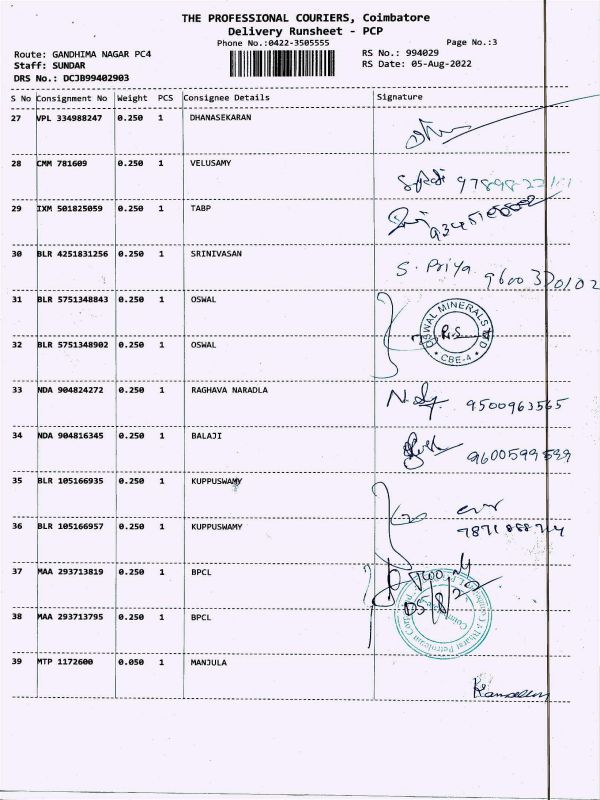 THE PROFESSIONAL COURIERS, Coimbatore
Delivery Runsheet - PCP
Phone No.:0422-3505555 Page No.:3
Route: GANDHIMA NAGAR PC4 RS No.: 994029
Staff: SUNDAR RS Date: 05-Aug-2022
DRS No.: DCJB99402903
S No Consignment No Weight PCS Consignee Details Signature
27 VPL 334988247 0.250 1 DHANASEKARAN
28 CMM 781609 0.250 1 VELUSAMY
29 IXM 501825059 0.250 1 TABP
30 BLR 4251831256 0.250 1 SRINIVASAN
S. Priya 9600370102
31 BLR 5751348843 0.250 1 OSWAL
OSWAL MINERALS
R.S.
CBE-4
32 BLR 5751348902 0.250 1 OSWAL
33 NDA 904824272 0.250 1 RAGHAVA NARADLA
9500963565
34 NDA 904816345 0.250 1 BALAJI
9600599599
35 BLR 105166935 0.250 1 KUPPUSWAMY
36 BLR 105166957 0.250 1 KUPPUSWAMY
37 MAA 293713819 0.250 1 BPCL
05/8/22
38 MAA 293713795 0.250 1 BPCL
39 MTP 1172600 0.050 1 MANJULA